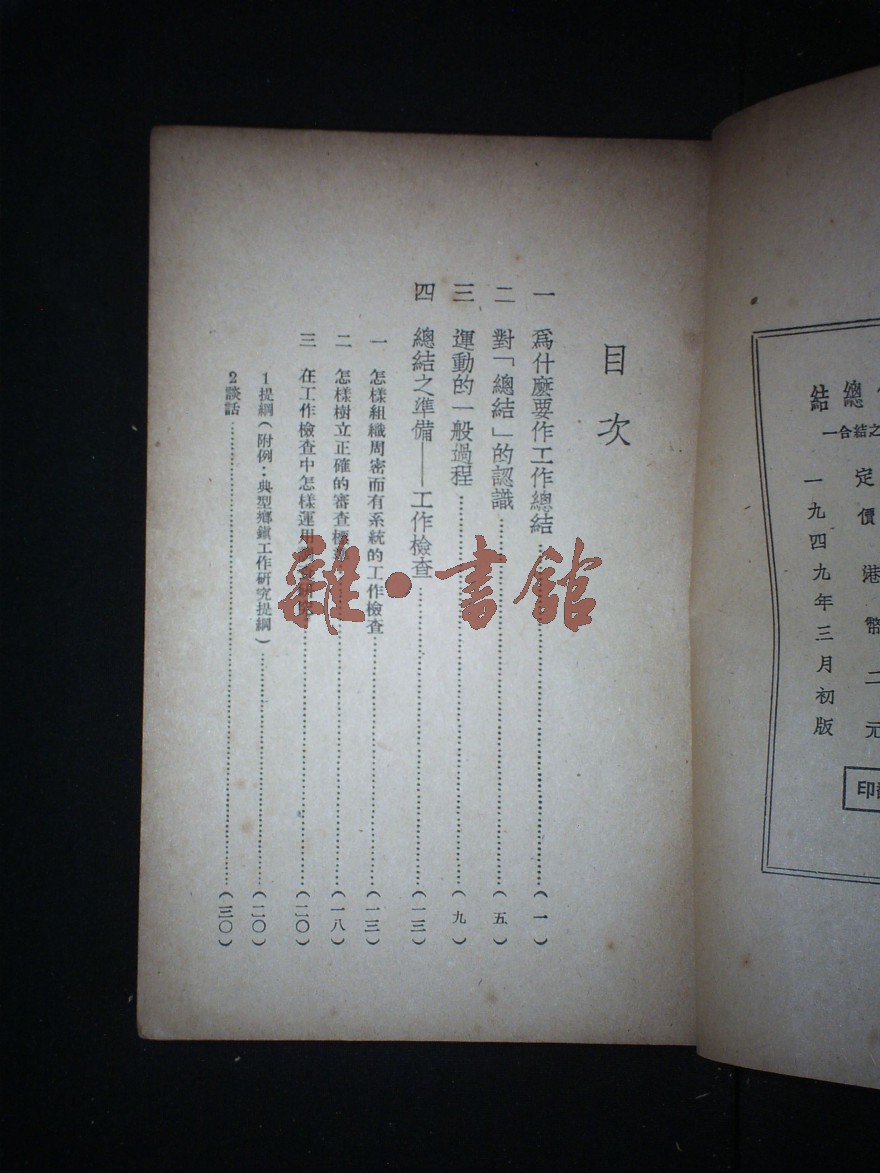 總結
之結合一
定價港幣二元
一九四九年三月初版
印
目次
一 爲什麼要作工作總結(一)
二 對「總結」的認識(五)
三 運動的一般過程(九)
四 總結之準備——工作檢查(一三)
一 怎樣組織周密而有系統的工作檢查(一三)
二 怎樣樹立正確的審查標準(一八)
三 在工作檢查中怎樣運用調查研究(二〇)
1 提綱(附例:典型鄉鎮工作研究提綱)(二〇)
2 談話(三〇)
雜·書館